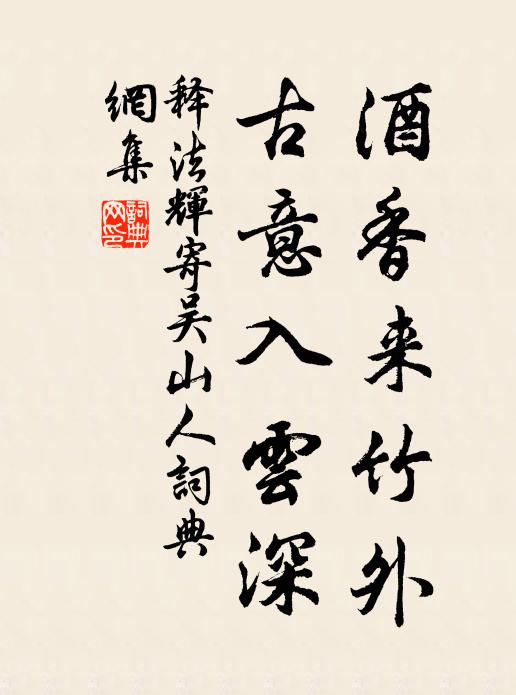 酒香来竹外
古意入雲深
释法輝寄吴山人詞典
網集
詞典网印